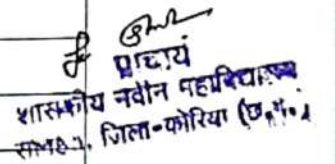 प्राचार्य
शासकीय नवीन महाविद्यालय
जिला-कोरिया (छ.ग.)